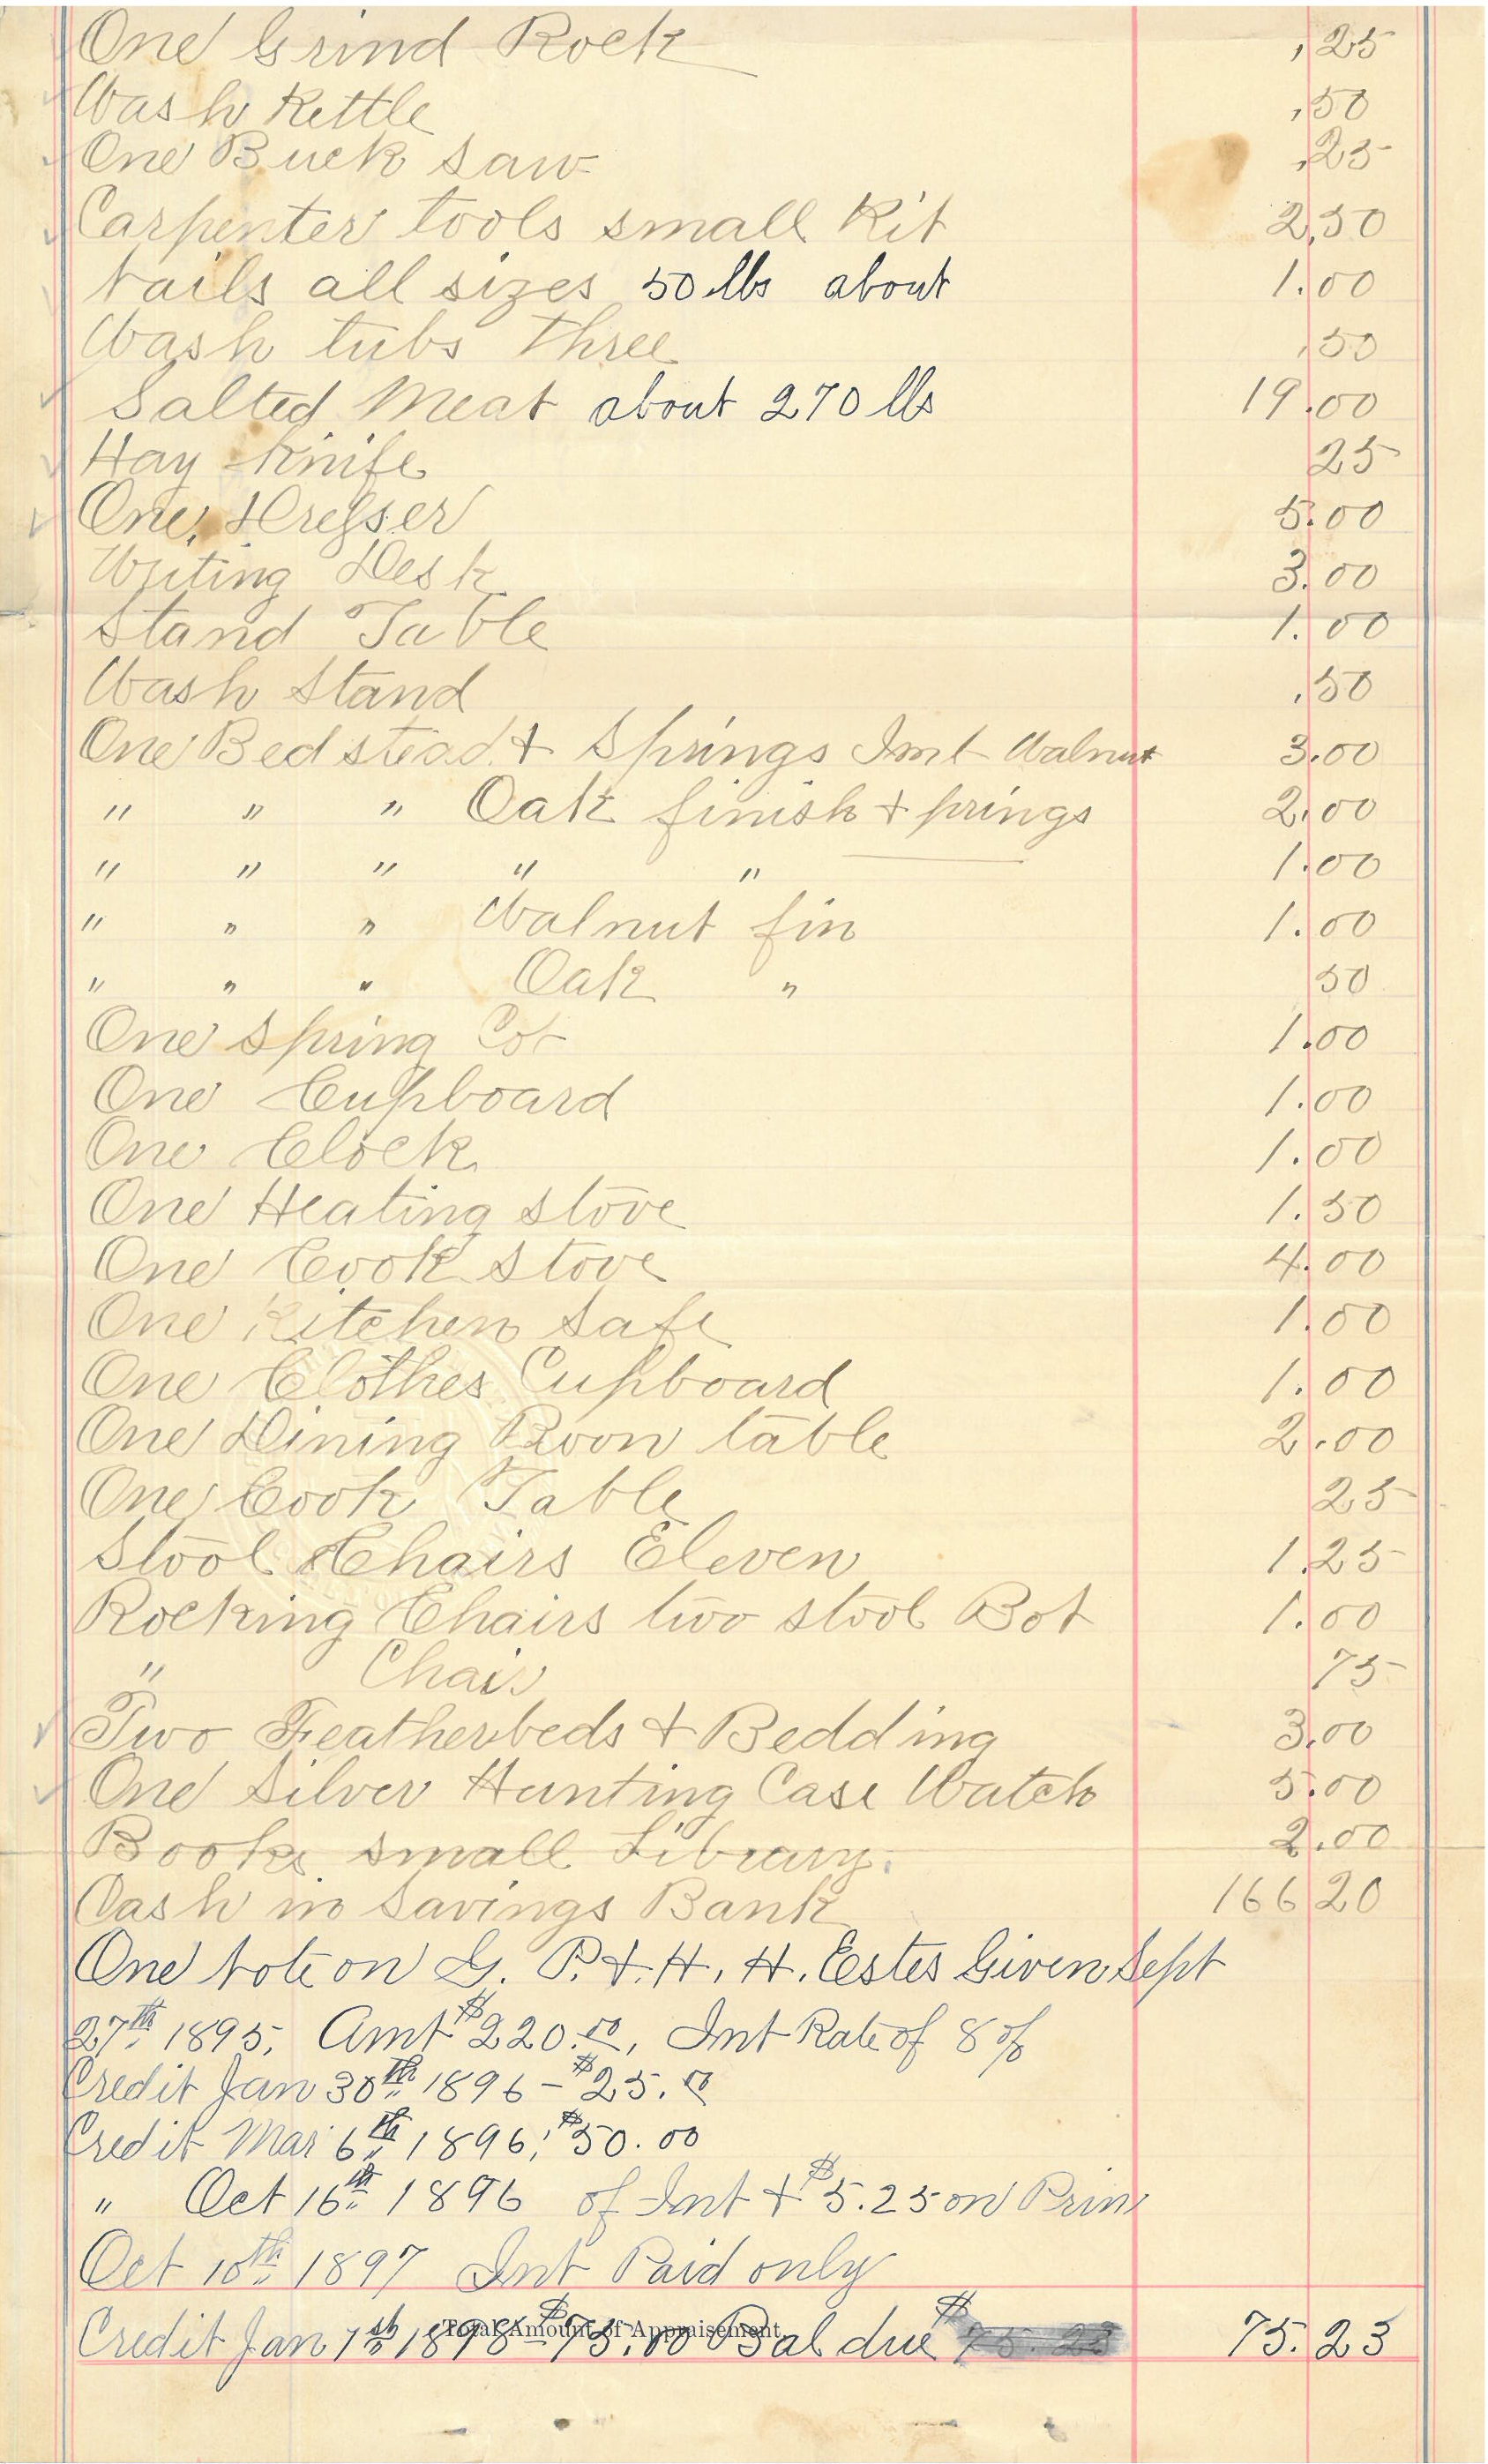 One Grind Rock ,25
Wash Kettle ,50
One Buck Saw ,25
Carpenter tools small Kit 2,50
Nails all sizes 50 lbs about 1.00
Wash tubs three ,50
Salted Meat about 270 lbs 19.00
Hay Knife 25
One Dresser 5.00
Writing Desk 3.00
Stand Table 1.00
Wash Stand .50
One Bed stead & Springs Imt Walnut 3.00
" " " Oak finish & prings 2.00
" " " " " 1.00
" " " Walnut fin 1.00
" " " Oak " 50
One Spring Cot 1.00
One Cupboard 1.00
One Clock 1.00
One Heating Stove 1.50
One Cook Stove 4.00
One Kitchen Safe 1.00
One Clothes Cupboard 1.00
One Dining Roon table 2.00
One Cook Table 25
Stool Chairs Eleven 1.25
Rocking Chairs two stool Bot 1.00
" Chair 75
Two Featherbeds & Bedding 3.00
One Silver Hunting Case Watch 5.00
Books small Library. 2.00
Cash in Savings Bank 166 20
One Note on G. P. & H. H. Estes Given Sept
27th 1895, Amt $220.00, Int Rate of 8 %
Credit Jan 30th 1896 - $25.00
Credit Mar 6th 1896, $50.00
" Oct 16th 1896 of Int & $5.25 on Prin
Oct 10th 1897 Int Paid only
Total Amount of Appraisement,
Credit Jan 1st 1898 - $75.00 Bal due $ 75.23